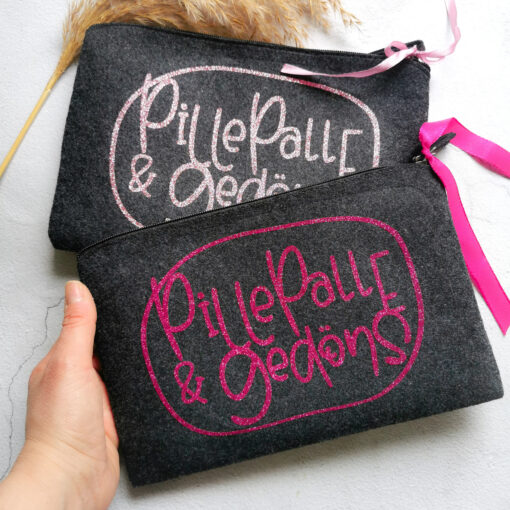 PillePalle
& Gedöns
PillePalle
& Gedöns